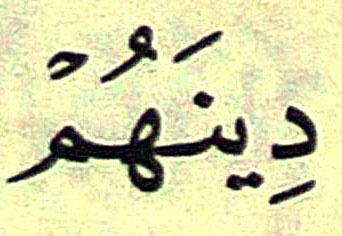 دِينَهُمْ